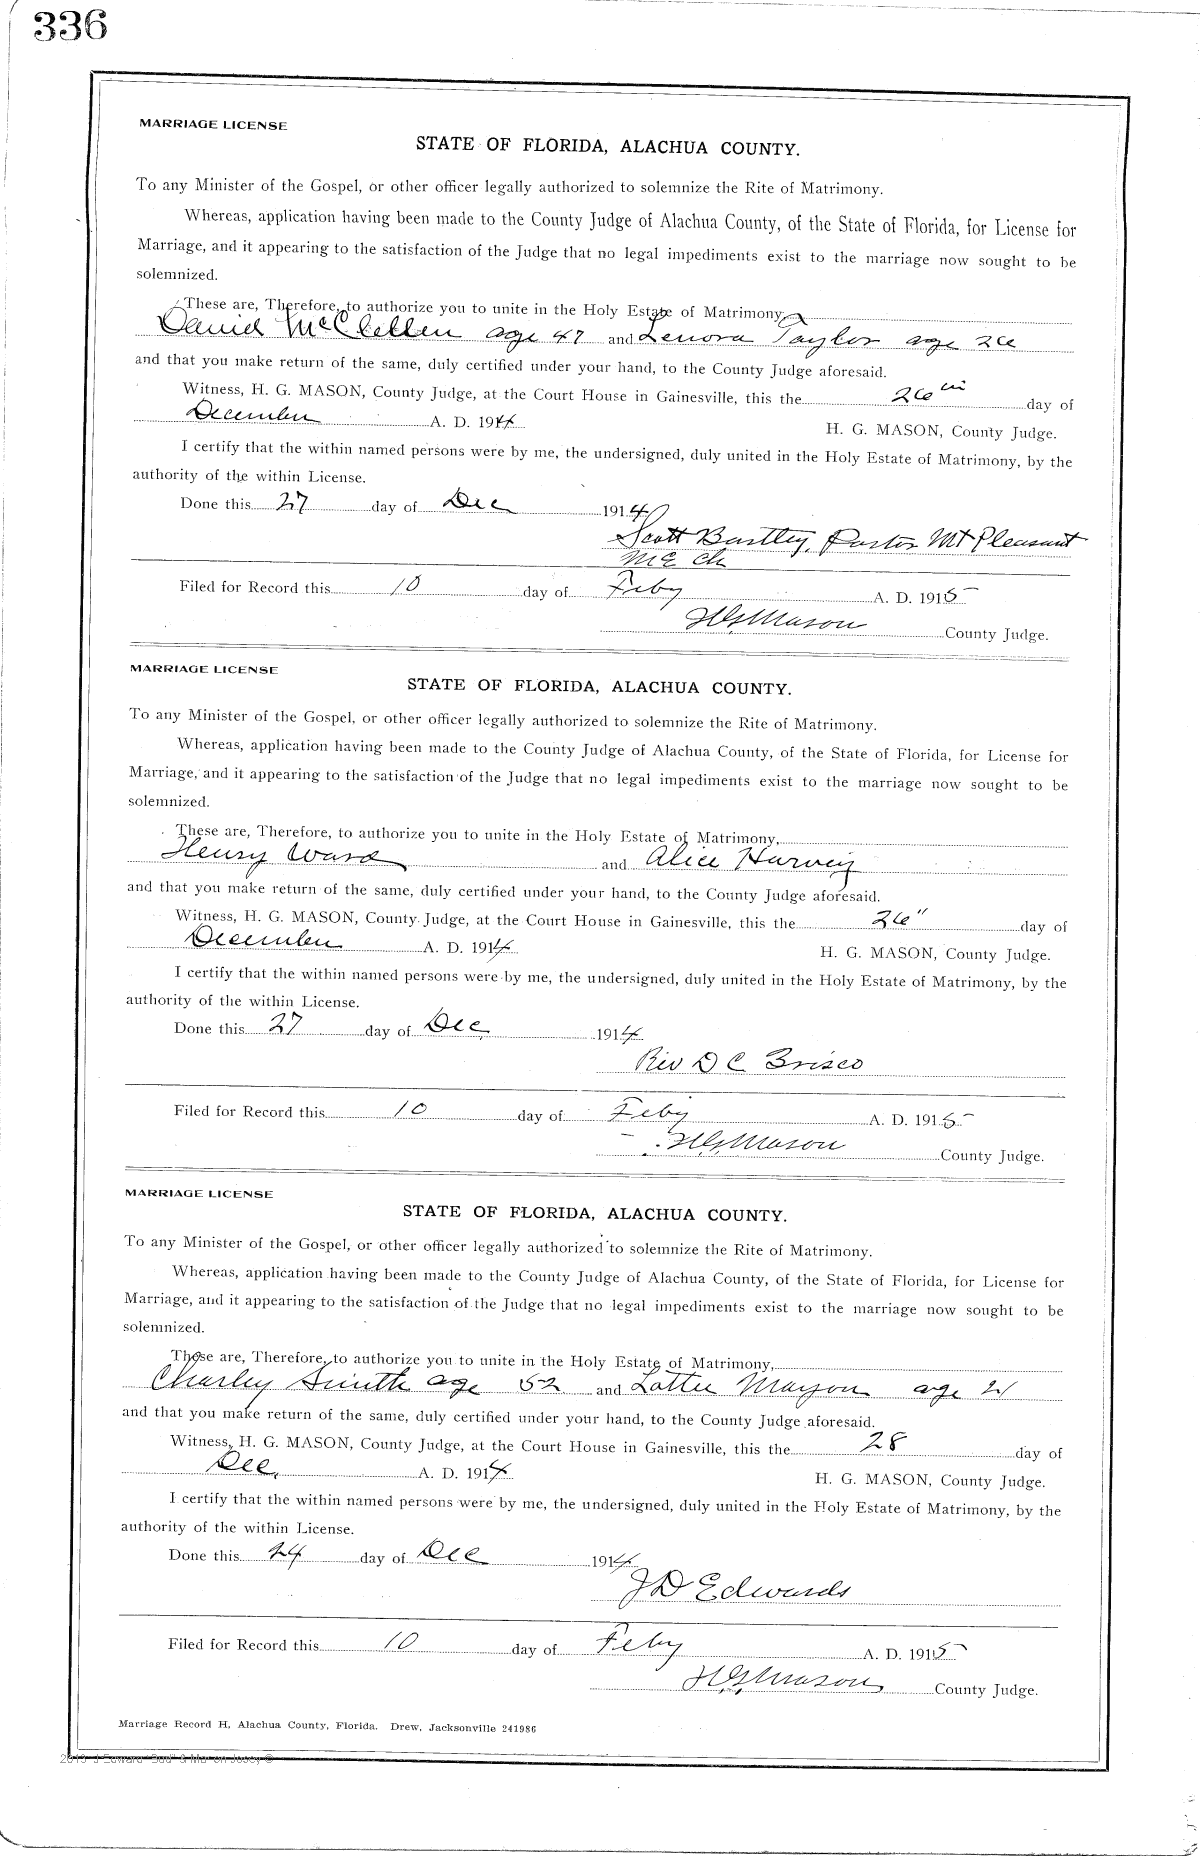 336
MARRIAGE LICENSE
STATE OF FLORIDA, ALACHUA COUNTY.
To any Minister of the Gospel, or other officer legally authorized to solemnize the Rite of Matrimony.
Whereas, application having been made to the County Judge of Alachua County, of the State of Florida, for License for
Marriage, and it appearing to the satisfaction of the Judge that no legal impediments exist to the marriage now sought to be
solemnized.
These are, Therefore, to authorize you to unite in the Holy Estate of Matrimony
Daniel McClellen age 47 and Lenora Taylor age 26
and that you make return of the same, duly certified under your hand, to the County Judge aforesaid.
Witness, H. G. MASON, County Judge, at the Court House in Gainesville, this the 26th day of
December A. D. 1914
H. G. MASON, County Judge.
I certify that the within named persons were by me, the undersigned, duly united in the Holy Estate of Matrimony, by the
authority of the within License.
Done this 27 day of Dec 1914
Scott Bartley, Pastor Mt Pleasant
ME Ch
Filed for Record this 10 day of Feby A. D. 1915
HGMason County Judge.
MARRIAGE LICENSE
STATE OF FLORIDA, ALACHUA COUNTY.
To any Minister of the Gospel, or other officer legally authorized to solemnize the Rite of Matrimony.
Whereas, application having been made to the County Judge of Alachua County, of the State of Florida, for License for
Marriage, and it appearing to the satisfaction of the Judge that no legal impediments exist to the marriage now sought to be
solemnized.
These are, Therefore, to authorize you to unite in the Holy Estate of Matrimony,
Henry Ward and Alice Harvey
and that you make return of the same, duly certified under your hand, to the County Judge aforesaid.
Witness, H. G. MASON, County Judge, at the Court House in Gainesville, this the 26" day of
December A. D. 1914
H. G. MASON, County Judge.
I certify that the within named persons were by me, the undersigned, duly united in the Holy Estate of Matrimony, by the
authority of the within License.
Done this 27 day of Dec 1914
Rev D C Brisco
Filed for Record this 10 day of Feby A. D. 1915
HGMason County Judge.
MARRIAGE LICENSE
STATE OF FLORIDA, ALACHUA COUNTY.
To any Minister of the Gospel, or other officer legally authorized to solemnize the Rite of Matrimony.
Whereas, application having been made to the County Judge of Alachua County, of the State of Florida, for License for
Marriage, and it appearing to the satisfaction of the Judge that no legal impediments exist to the marriage now sought to be
solemnized.
These are, Therefore, to authorize you to unite in the Holy Estate of Matrimony,
Charley Smith age 52 and Lottie Mayon age 21
and that you make return of the same, duly certified under your hand, to the County Judge aforesaid.
Witness, H. G. MASON, County Judge, at the Court House in Gainesville, this the 28 day of
Dec, A. D. 1914
H. G. MASON, County Judge.
I certify that the within named persons were by me, the undersigned, duly united in the Holy Estate of Matrimony, by the
authority of the within License.
Done this 24 day of Dec 1914
JD Edwards
Filed for Record this 10 day of Feby A. D. 1915
HGMason County Judge.
Marriage Record H, Alachua County, Florida. Drew, Jacksonville 241986